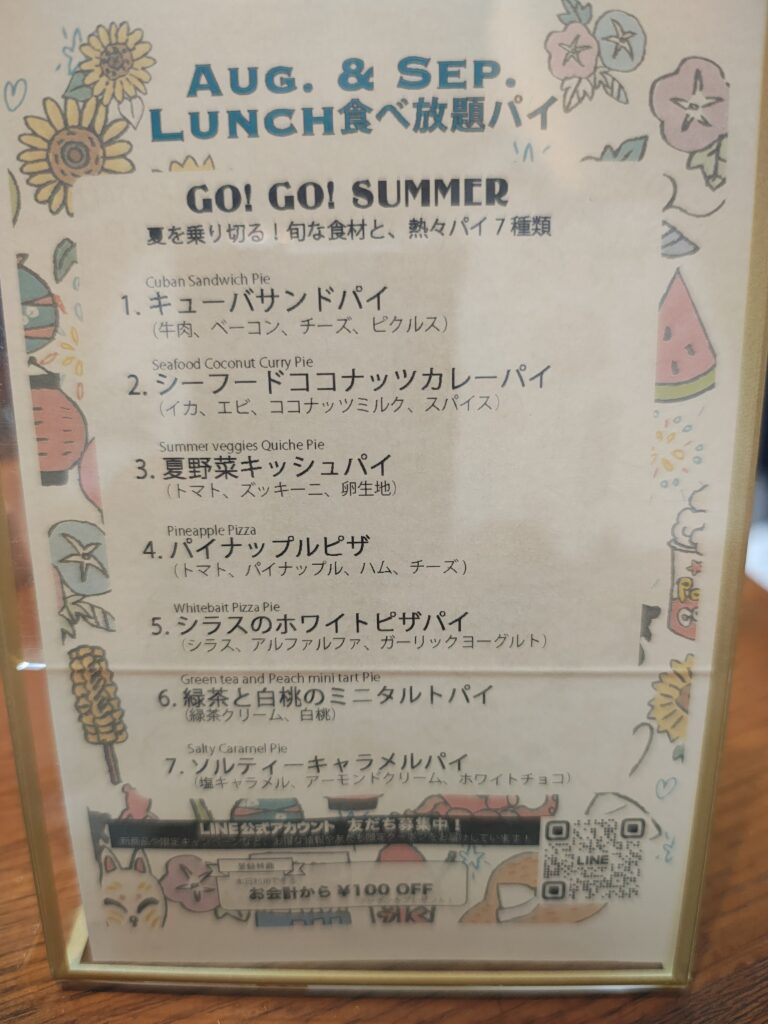 AUG. & SEP.
LUNCH食べ放題パイ
GO! GO! SUMMER
夏を乗り切る！旬な食材と、熱々パイ７種類
Cuban Sandwich Pie
1. キューバサンドパイ
(牛肉、ベーコン、チーズ、ピクルス)
Seafood Coconut Curry Pie
2. シーフードココナッツカレーパイ
(イカ、エビ、ココナッツミルク、スパイス)
Summer veggies Quiche Pie
3. 夏野菜キッシュパイ
(トマト、ズッキーニ、卵生地)
Pineapple Pizza
4. パイナップルピザ
(トマト、パイナップル、ハム、チーズ)
Whitebait Pizza Pie
5. シラスのホワイトピザパイ
(シラス、アルファルファ、ガーリックヨーグルト)
Green tea and Peach mini tart Pie
6. 緑茶と白桃のミニタルトパイ
(緑茶クリーム、白桃)
Salty Caramel Pie
7. ソルティーキャラメルパイ
(塩キャラメル、アーモンドクリーム、ホワイトチョコ)
LINE公式アカウント 友だち募集中！
登録特典
お会計から ¥100 OFF
LINE